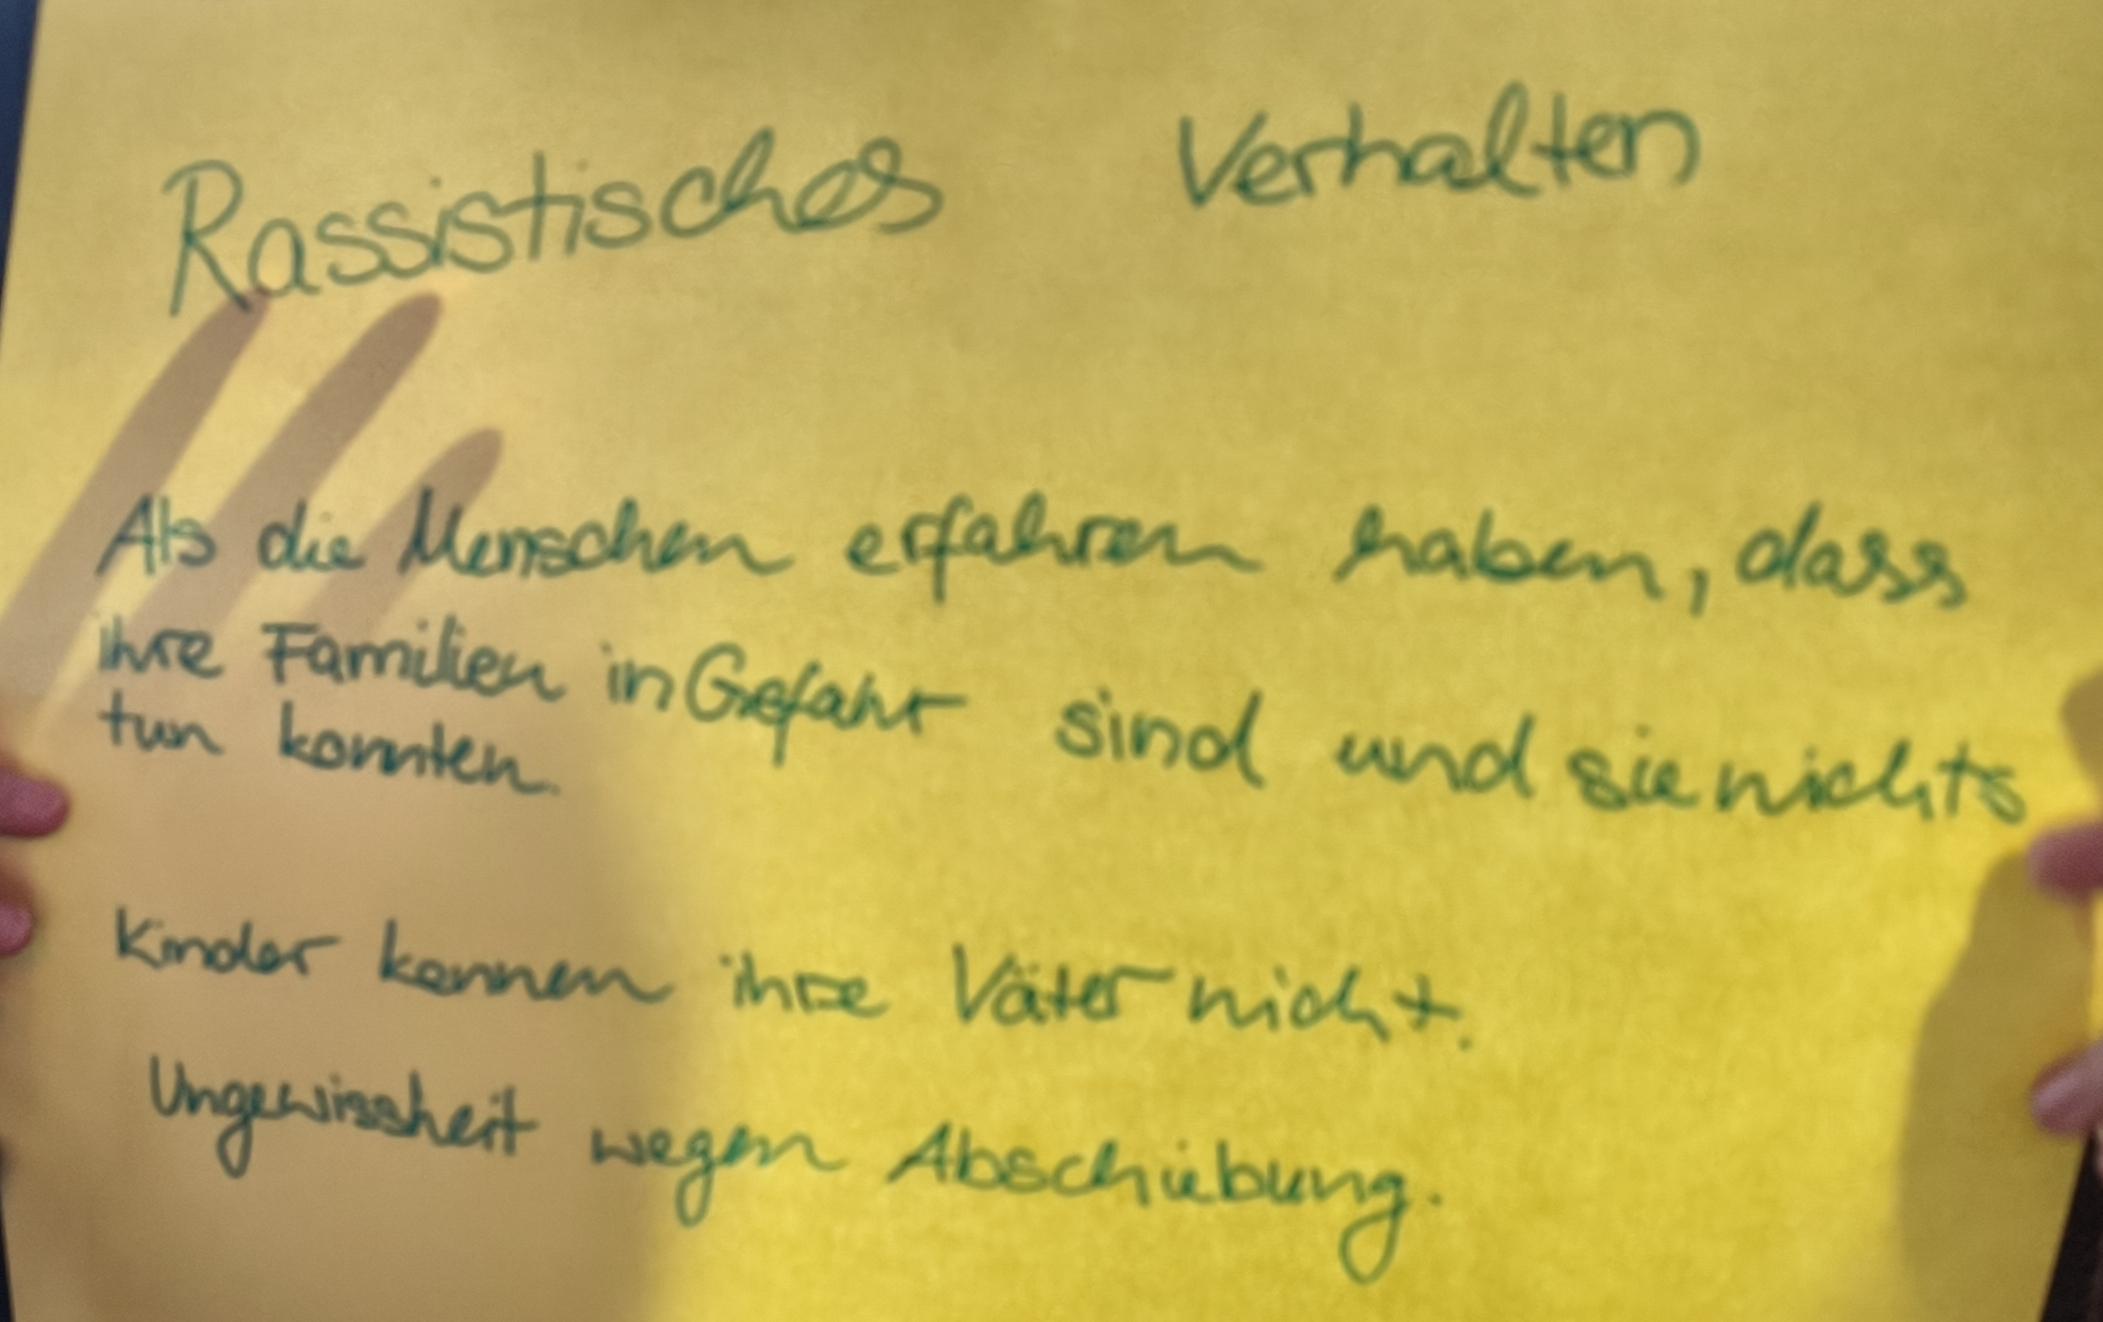 Rassistisches Verhalten
Als die Menschen erfahren haben, dass
ihre Familien in Gefahr sind und sie nichts
tun konnten.
Kinder kennen ihre Väter nicht.
Ungewissheit wegen Abschiebung.